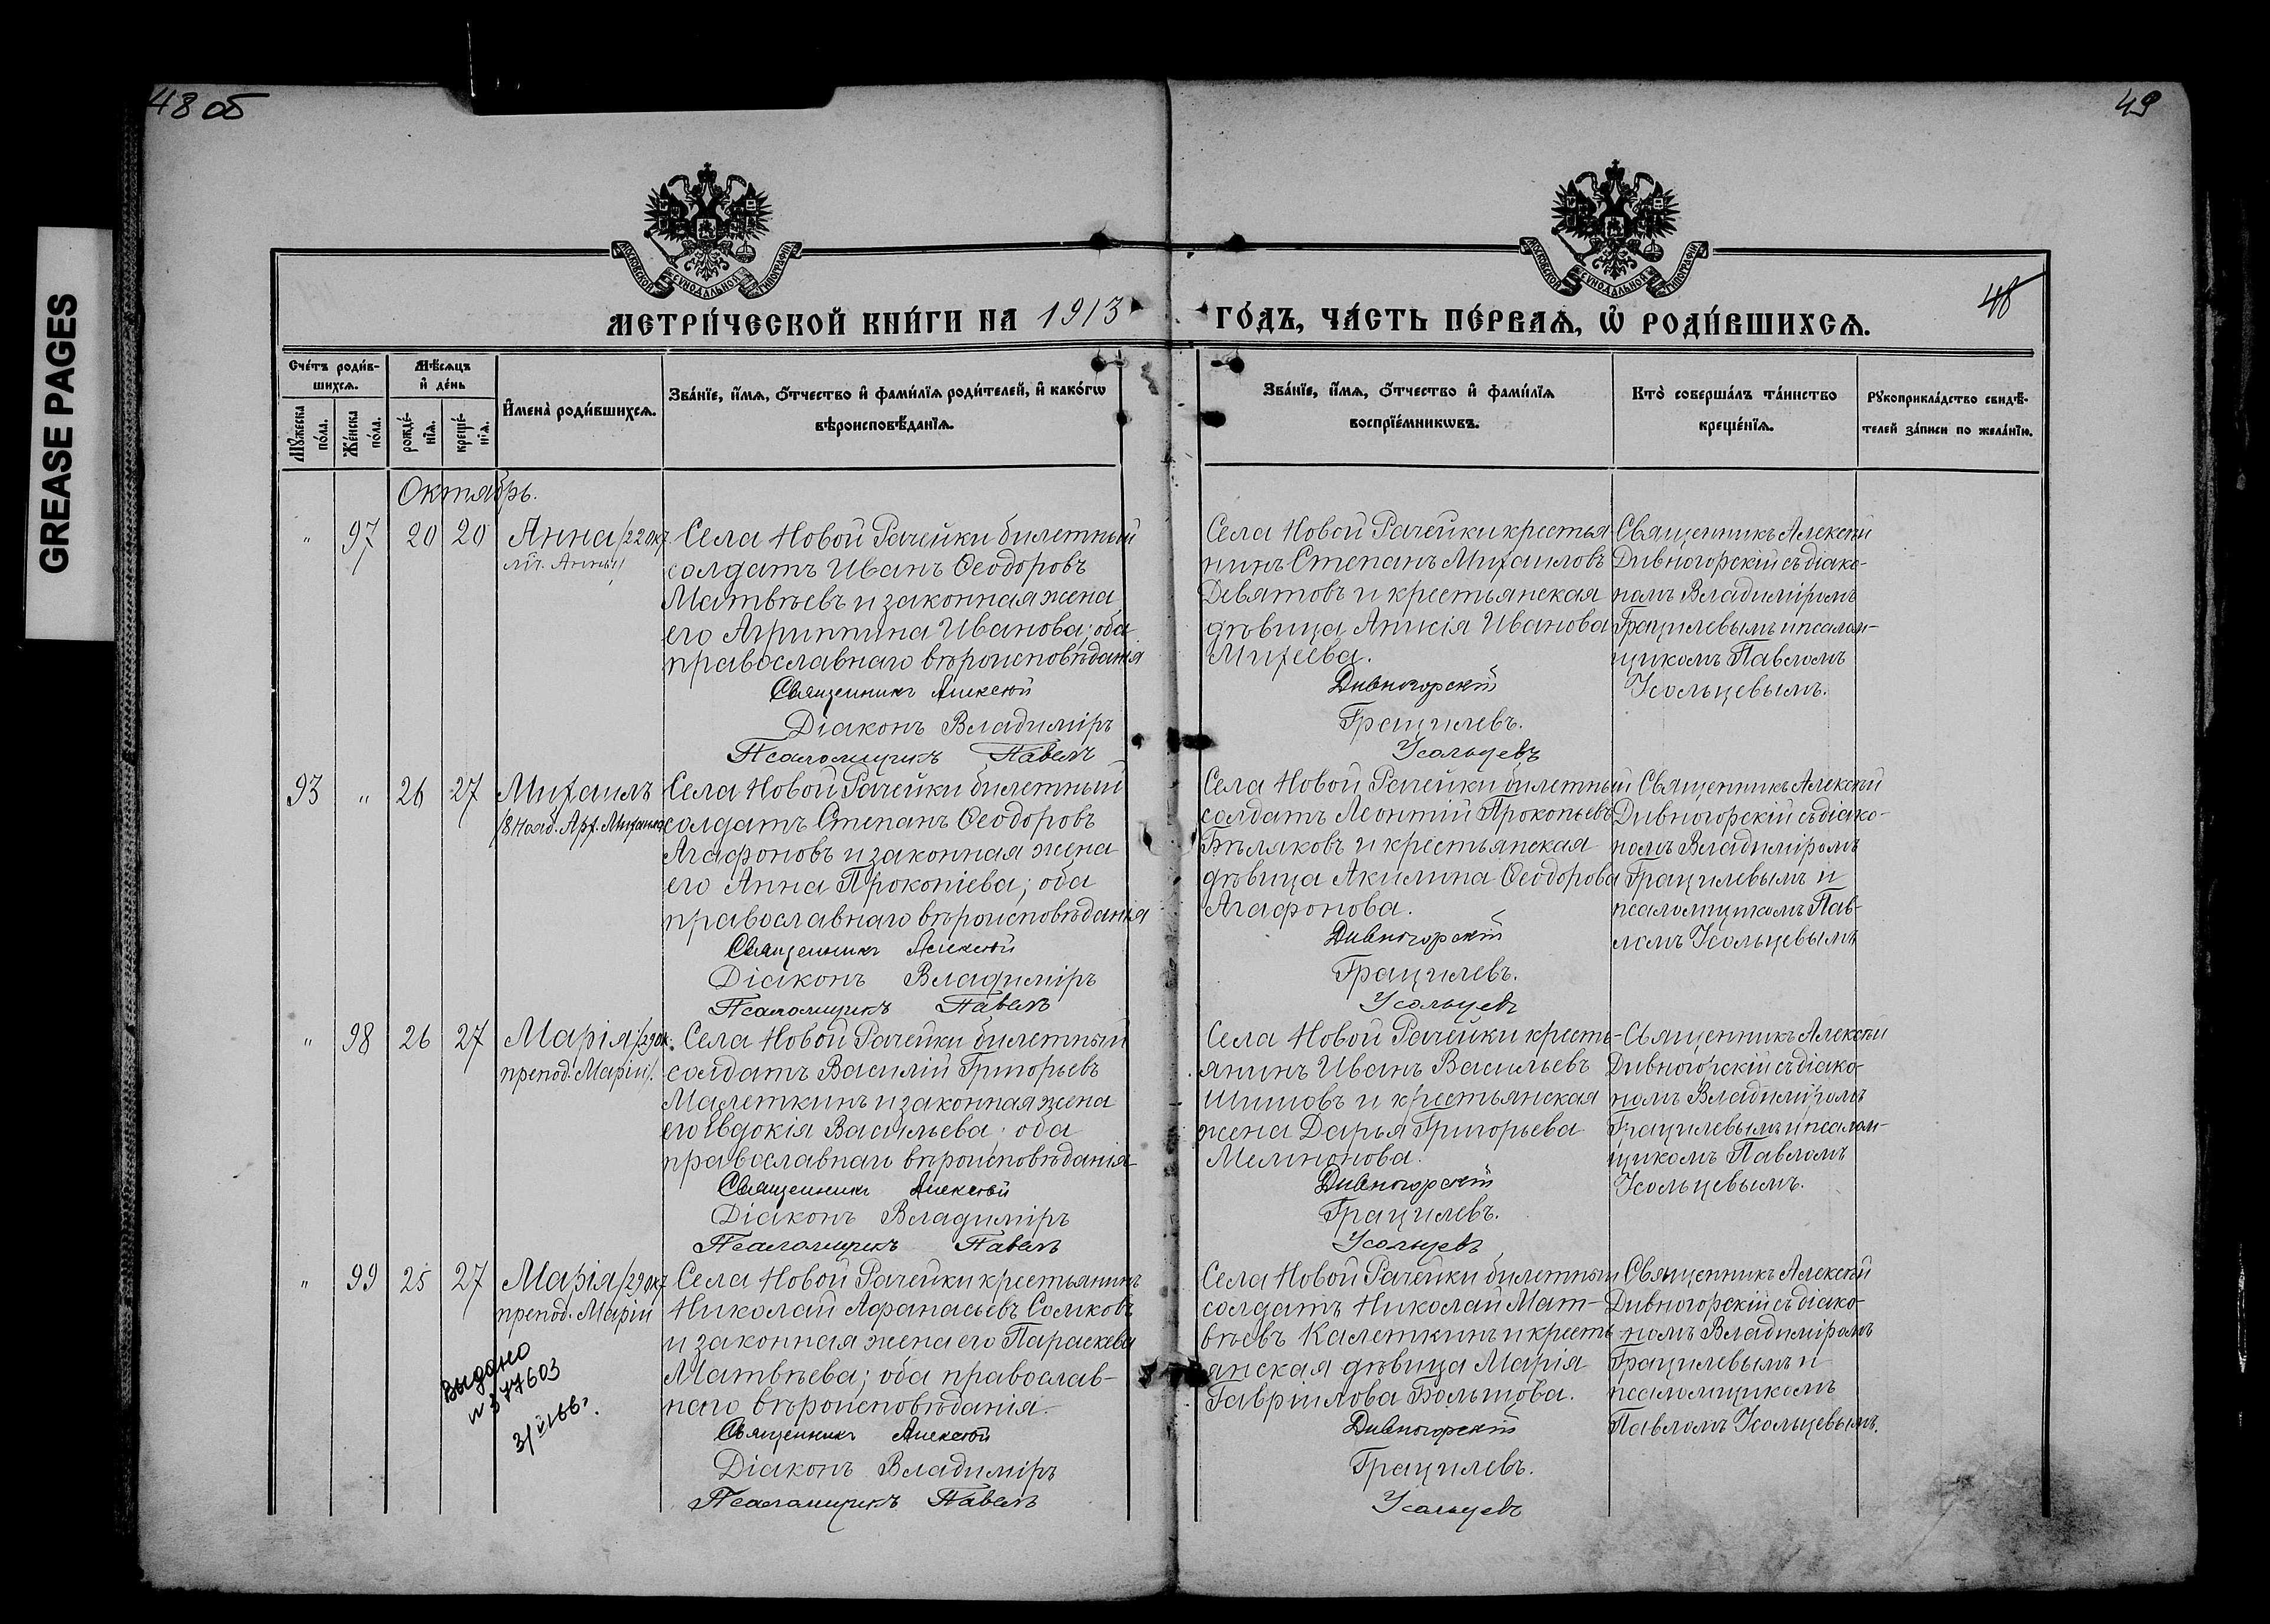 48 об
49
GREASE PAGES
МОСКОВСКОЙ СѴНОДАЛЬНОЙ ТИПОГРАФІИ
МОСКОВСКОЙ СѴНОДАЛЬНОЙ ТИПОГРАФІИ
МЕТРИ́ЧЕСКОЙ КНИ́ГИ НА 1913
ГО́ДЪ, ЧА́СТЬ ПЕ́РВАѦ, Ѡ҆ РОДИ́ВШИХСѦ.
48
Сче́тъ роди́в-
шихсѧ.
Мѣ́сѧцъ
и҆ де́нь
Мꙋ́жеска
по́ла.
Же́нска
по́ла.
рожде́-
нїѧ.
креще́-
нїѧ.
И҆мена̀ роди́вшихсѧ.
Зва́нїе, и҆́мѧ, ѻ҆́тчество и҆ фами́лїѧ роди́телей, и҆ како́гѡ
вѣроисповѣ́данїѧ.
Зва́нїе, и҆́мѧ, ѻ҆́тчество и҆ фами́лїѧ
воспрїе́мникѡвъ.
Кто̀ соверша́лъ та́инство
креще́нїѧ.
Рꙋкоприкла́дство свидѣ́-
телей за́писи по жела́нїю.
Октябрь.
" 97 20 20 Анна /22 ок.
Села Новой Рачейки билетный
солдатъ Иванъ Ѳеодоровъ
Матвѣевъ и законная жена
его Агриппина Иванова; оба
православнаго вѣроисповѣданія
Священникъ Алексѣй
Діаконъ Владиміръ
Псаломщикъ Павелъ
Села Новой Рачейки крестья-
нинъ Степанъ Михаиловъ
Девятовъ и крестьянская
дѣвица Анисія Иванова
Михеева.
Дивногорскій
Грацилевъ.
Усольцевъ
Священникъ Алексѣй
Дивногорскій съ діако-
номъ Владиміромъ
Грацилевымъ и псалом-
щикомъ Павломъ
Усольцевымъ.
93 " 26 27 Михаилъ
/8 Нояб. Арх. Михаила
Села Новой Рачейки билетный
солдатъ Степанъ Ѳеодоровъ
Агафоновъ и законная жена
его Анна Прокопіева; оба
православнаго вѣроисповѣданія
Священникъ Алексѣй
Діаконъ Владиміръ
Псаломщикъ Павелъ
Села Новой Рачейки билетный
солдатъ Леонтій Прокопьевъ
Бѣляковъ и крестьянская
дѣвица Акилина Ѳеодорова
Агафонова.
Дивногорскій
Грацилевъ.
Усольцевъ
Священникъ Алексѣй
Дивногорскій съ діако-
номъ Владиміромъ
Грацилевымъ и
псаломщикомъ Пав-
ломъ Усольцевымъ
" 98 26 27 Марія /29 ок.
препод. Маріи/.
Села Новой Рачейки билетный
солдатъ Василій Григорьевъ
Малеткинъ и законная жена
его Евдокія Васильева; оба
православнаго вѣроисповѣданія
Священникъ Алексѣй
Діаконъ Владиміръ
Псаломщикъ Павелъ
Села Новой Рачейки кресть-
янинъ Иванъ Васильевъ
Шишовъ и крестьянская
жена Дарья Григорьева
Мелионова.
Дивногорскій
Грацилевъ.
Усольцевъ
Священникъ Алексѣй
Дивногорскій съ діако-
номъ Владиміромъ
Грацилевымъ и псалом-
щикомъ Павломъ
Усольцевымъ.
" 99 25 27 Марія /29 ок.
препод. Маріи
Выдано
№ 377603
Села Новой Рачейки крестьянинъ
Николай Аѳанасьевъ Сомковъ
и законная жена его Параскева
Матвѣева; оба православ-
наго вѣроисповѣданія.
Священникъ Алексѣй
Діаконъ Владиміръ
Псаломщикъ Павелъ
Села Новой Рачейки билетный
солдатъ Николай Мат-
вѣевъ Калеткинъ и кресть-
янская дѣвица Марія
Гавріилова Большова.
Дивногорскій
Грацилевъ.
Усольцевъ
Священникъ Алексѣй
Дивногорскій съ діако-
номъ Владиміромъ
Грацилевымъ и
псаломщикомъ
Павломъ Усольцевымъ.